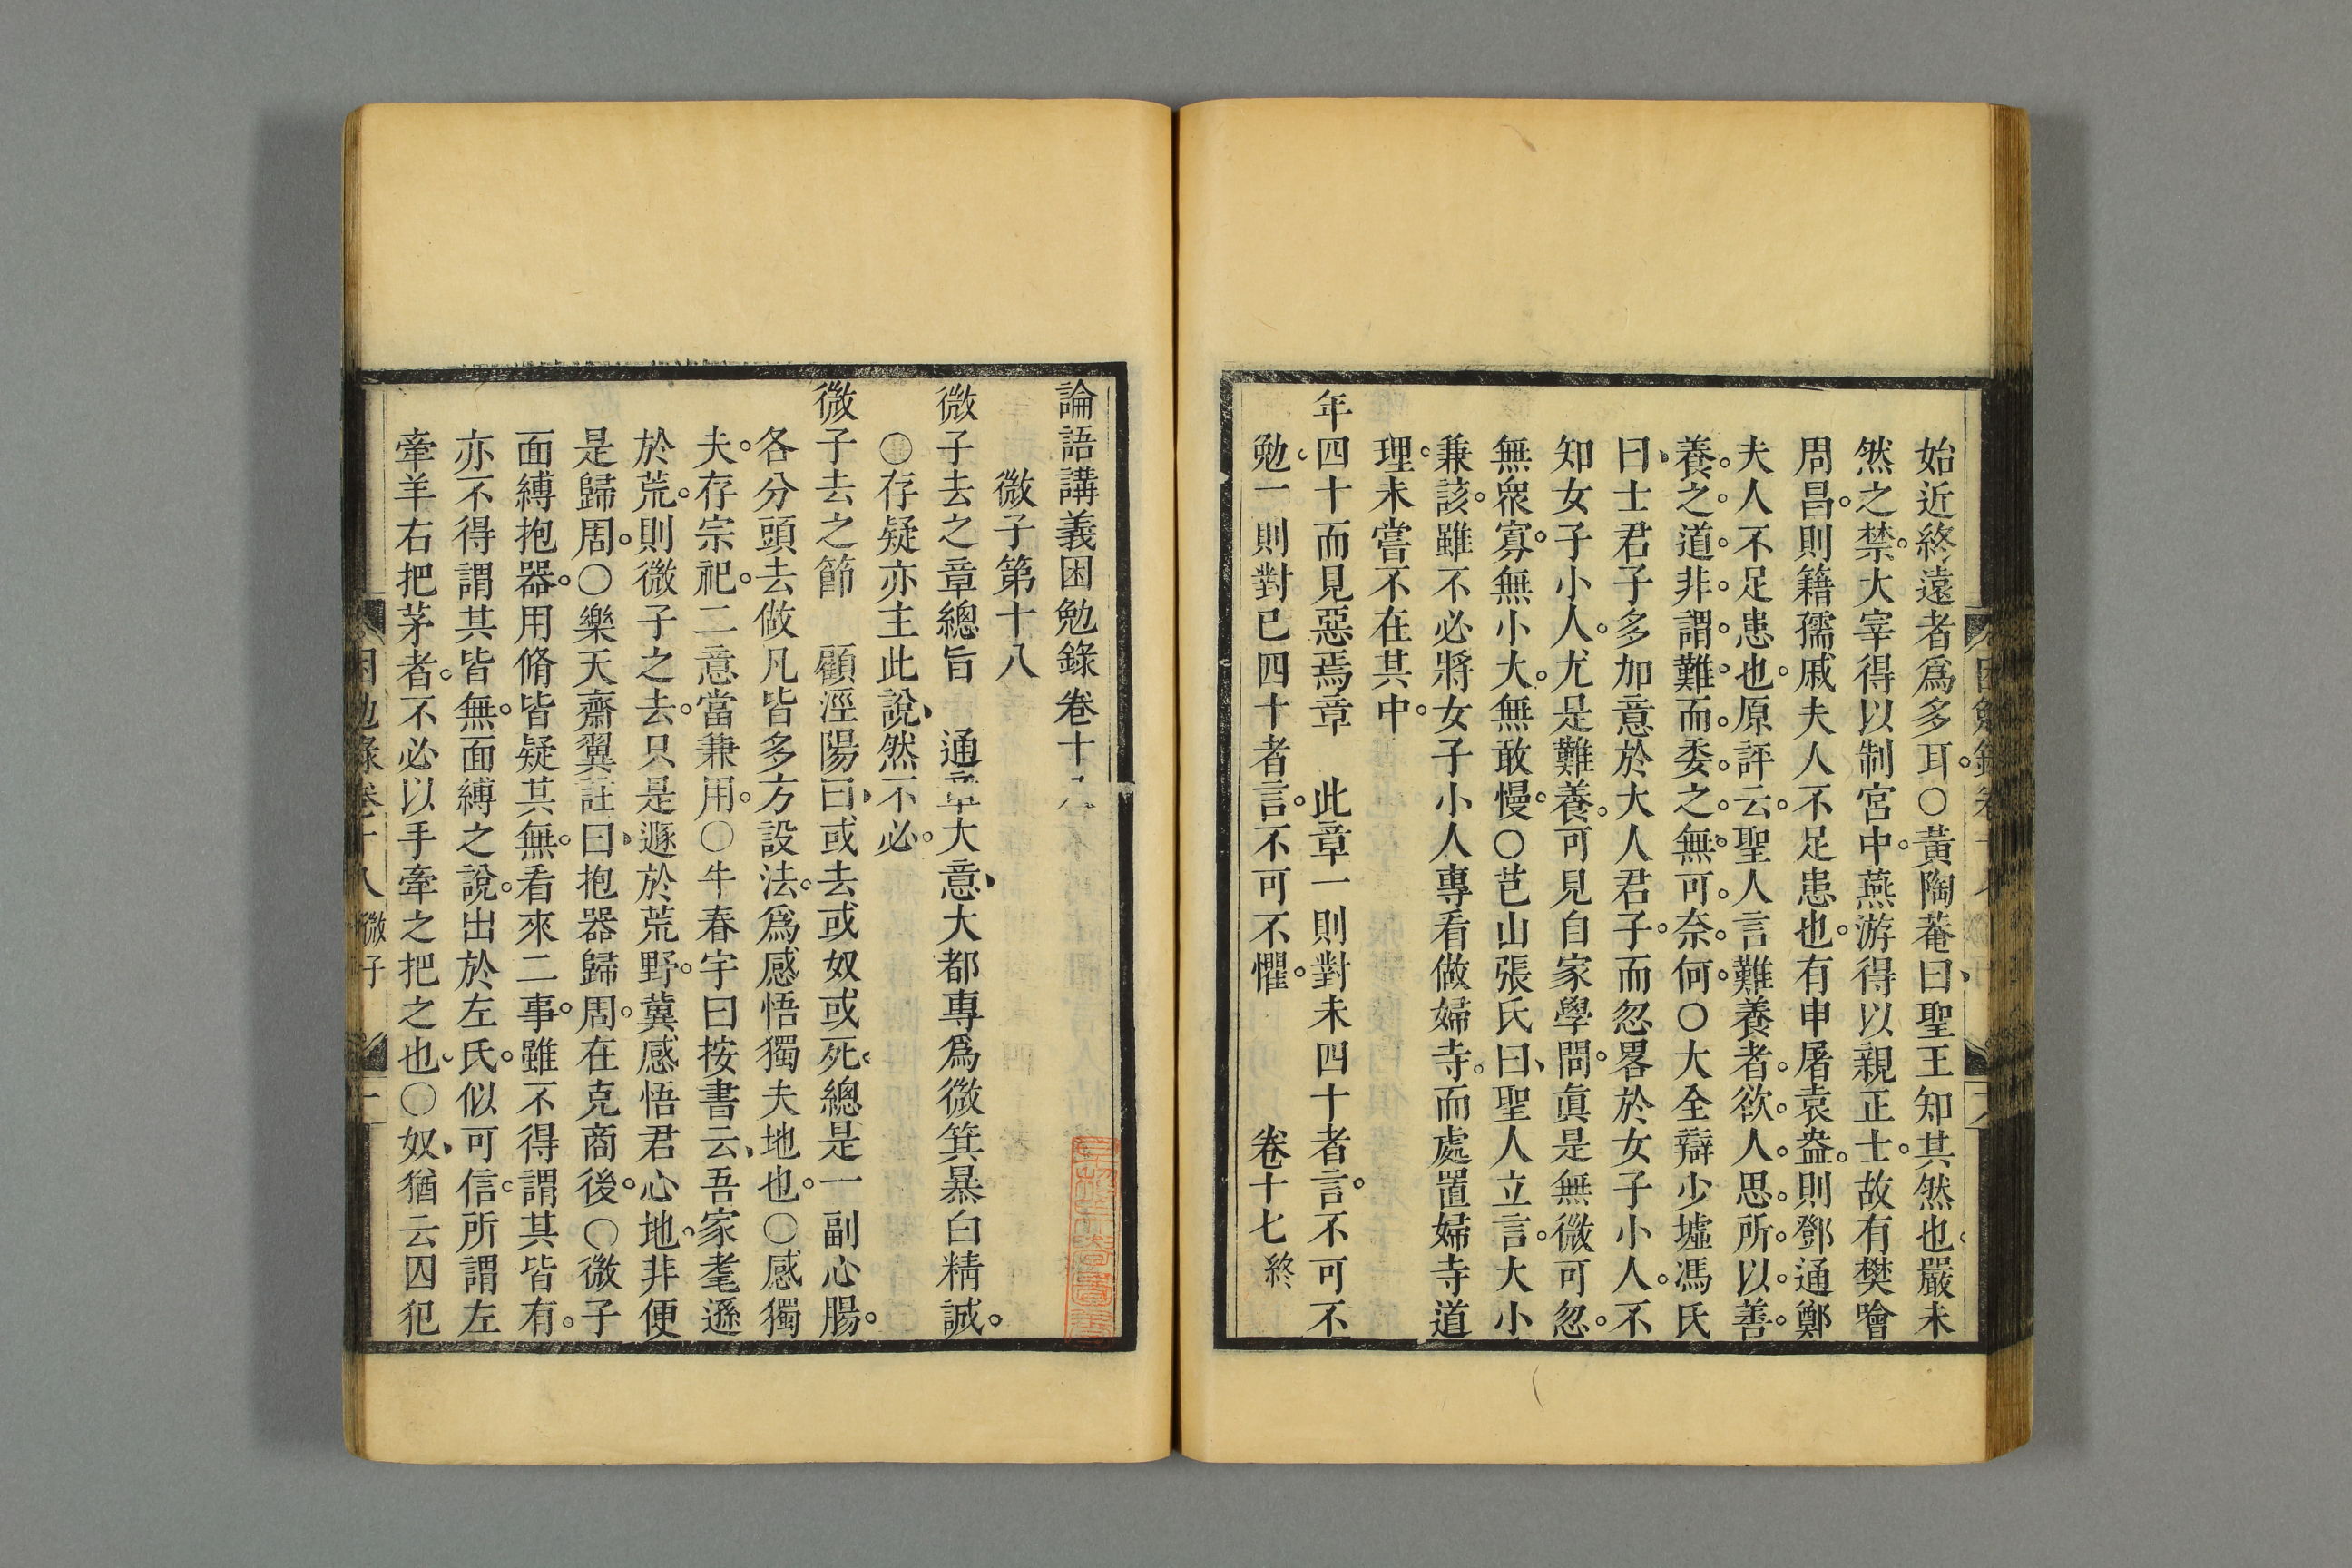 始近終遠者爲多耳。○黃陶菴曰、聖王知其然也。嚴未
然之禁。大宰得以制宮中。燕游得以親正士。故有樊噲
周昌。則籍孺戚夫人不足患也。有申屠袁盎。則鄧通鄭
夫人不足患也。原評云。聖人言難養者。欲人思所以善
養之道。非謂難而委之無可奈何。○大全辯少墟馮氏
曰、士君子多加意於大人君子。而忽畧於女子小人。不
知女子小人。尤是難養。可見自家學問。眞是無微可忽。
無衆寡。無小大。無敢慢。○芑山張氏曰、聖人立言。大小
兼該。雖不必將女子小人專看做婦寺。而處置婦寺道
理。未嘗不在其中。
年四十而見惡焉章　此章一則對未四十者言。不可不
勉。一則對已四十者言。不可不懼。　卷十七終
論語講義困勉錄卷十八
微子第十八
微子去之章總旨　通章大意、大都專爲微箕暴白精誠。
○存疑亦主此說、然不必。
微子去之節　顧涇陽曰、或去或奴或死、總是一副心腸。
各分頭去做。凡皆多方設法。爲感悟獨夫地也。○感獨
夫。存宗祀。二意當兼用。○牛春宇曰按書云、吾家耄遜
於荒。則微子之去。只是遯於荒野。冀感悟君心地。非便
是歸周。○樂天齋翼註曰、抱器歸周。在克商後。○微子
面縛抱器。用脩皆疑其無。看來二事。雖不得謂其皆有。
亦不得謂其皆無。面縛之說。出於左氏。似可信。所謂左
牽羊右把茅者。不必以手牽之把之也。○奴、猶云囚犯
困勉錄卷十八 微子 一